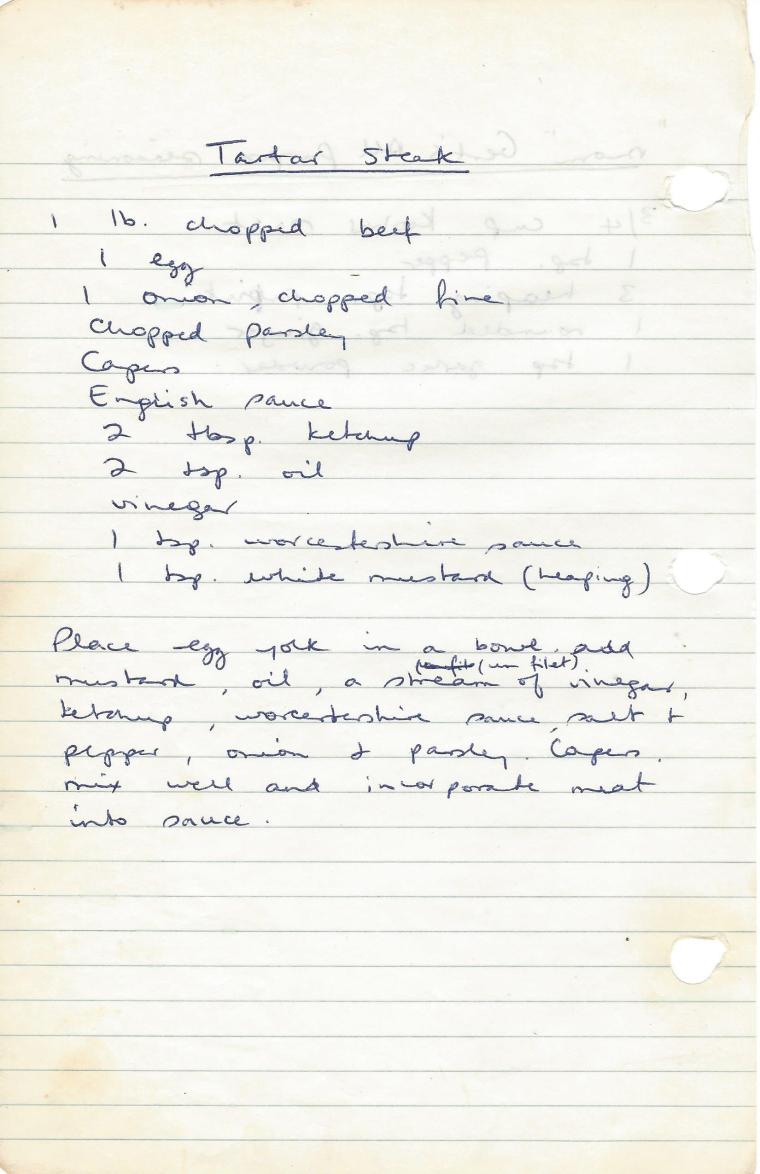 Tartar Steak
1 lb. chopped beef
1 egg
1 onion, chopped fine
Chopped parsley
Capers
English sauce
2 tbsp. ketchup
2 tsp. oil
vinegar
1 tsp. worcestershire sauce
1 tsp. white mustard (heaping)
Place egg yolk in a bowl. add
(un filet)
mustard, oil, a stream of vinegar,
ketchup, worcestershire sauce, salt +
pepper, onion & parsley. Capers.
mix well and incorporate meat
into sauce.